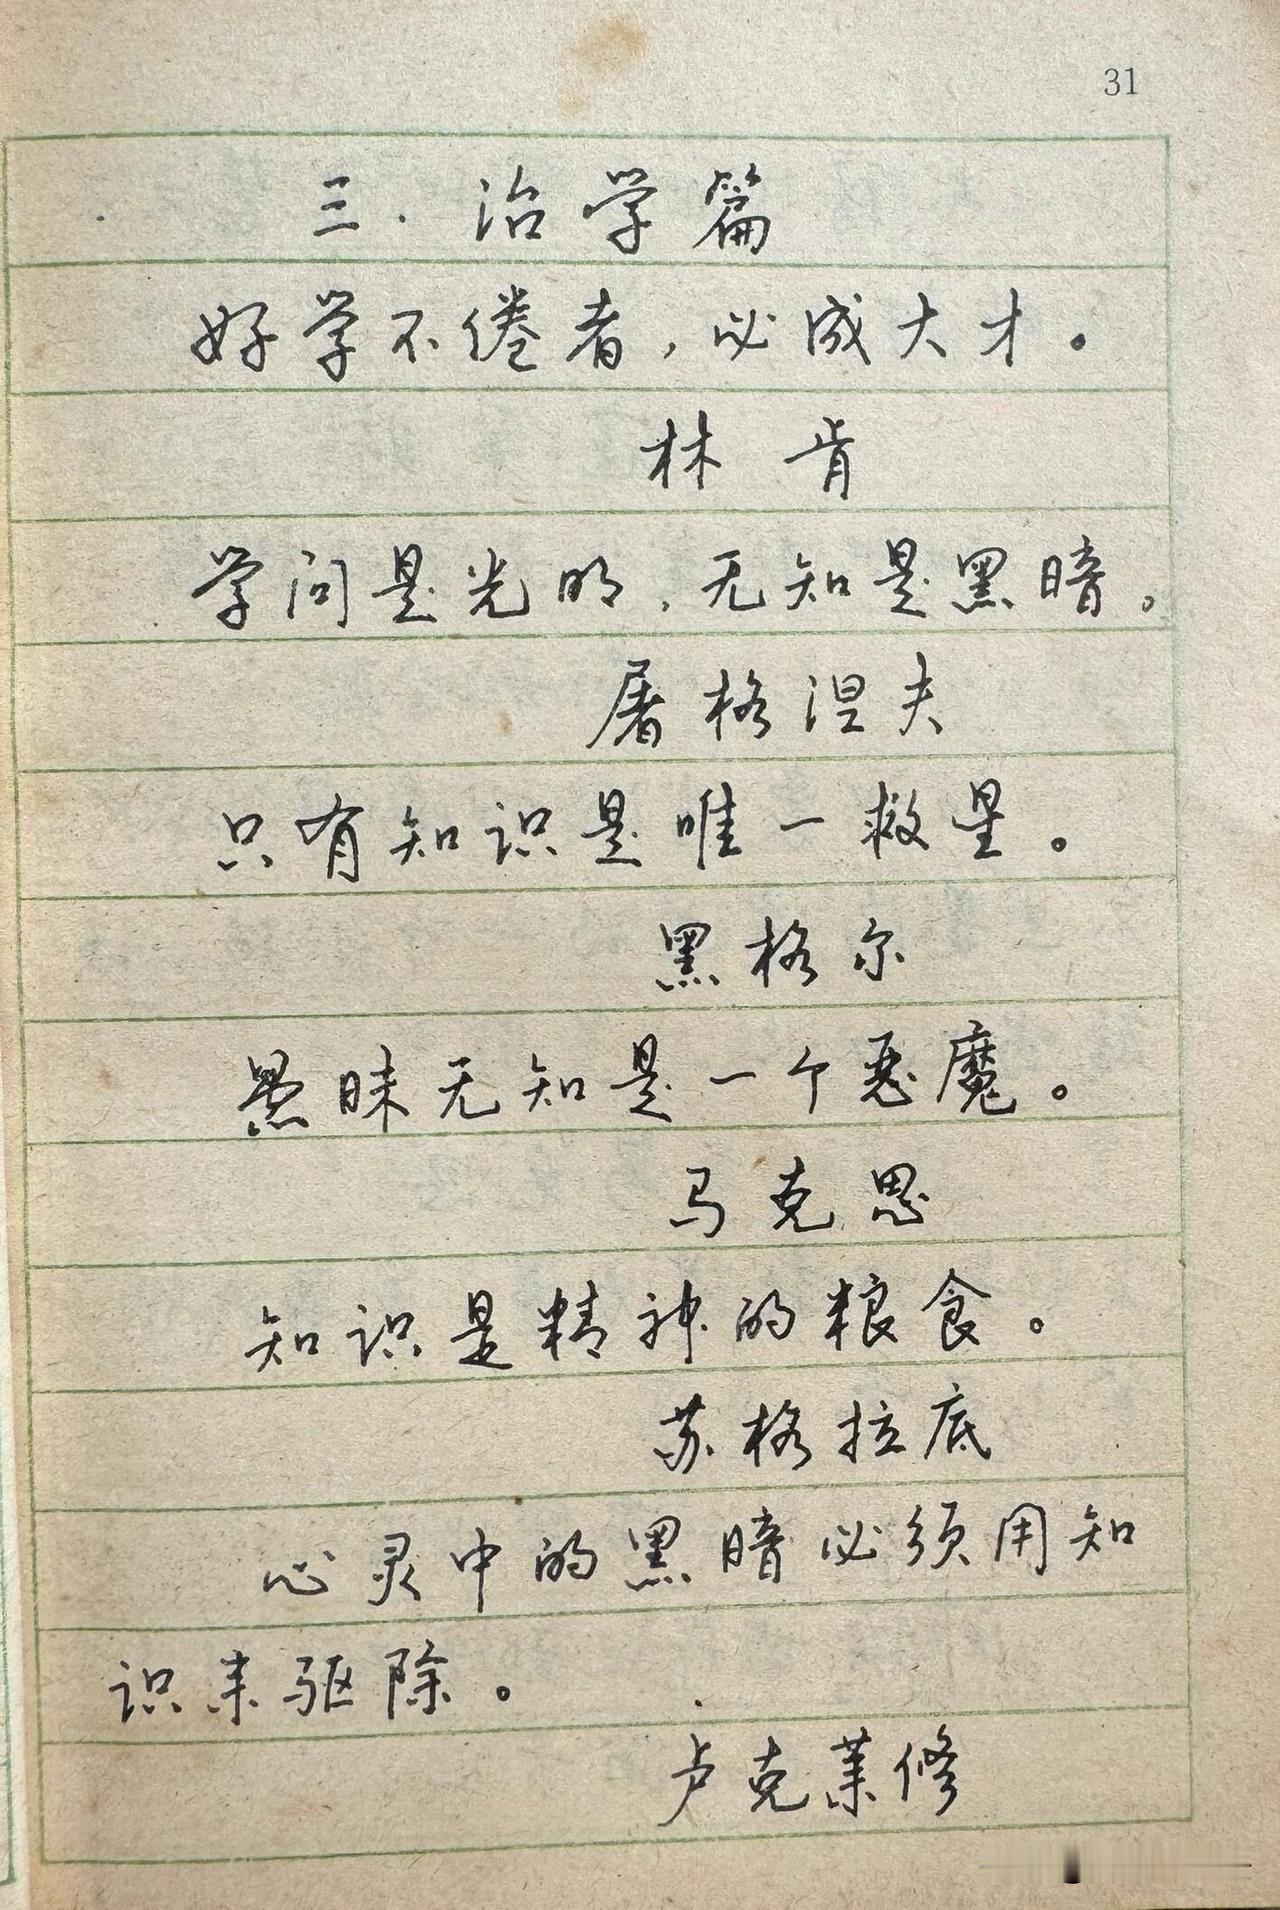 31
三．治学篇
好学不倦者，必成大才。
林肯
学问是光明，无知是黑暗。
屠格涅夫
只有知识是唯一救星。
黑格尔
愚昧无知是一个恶魔。
马克思
知识是精神的粮食。
苏格拉底
心灵中的黑暗必须用知
识来驱除。
卢克莱修